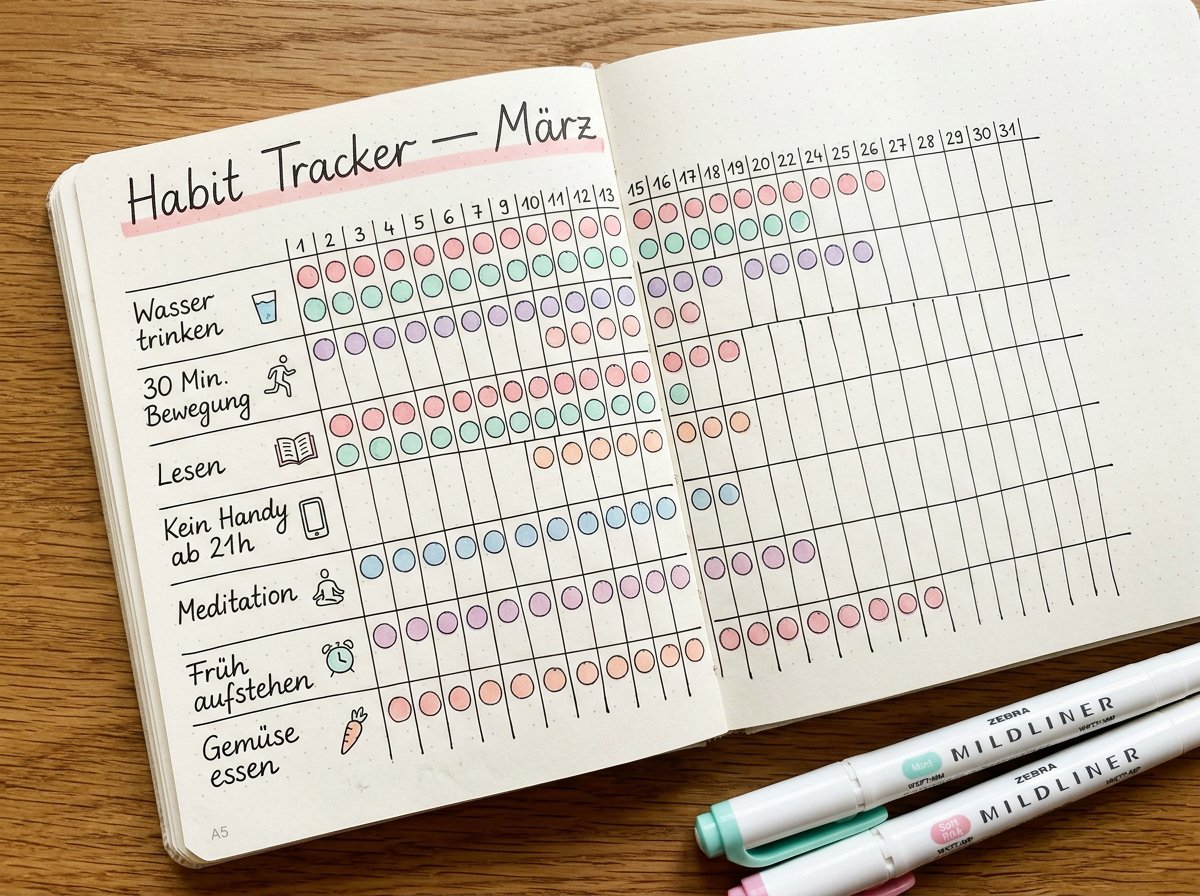 Habit Tracker — März
1 2 3 4 5 6 7 9 10 11 12 13 15 16 17 18 19 20 22 24 25 26 27 28 29 30 31
Wasser
trinken
30 Min.
Bewegung
Lesen
Kein Handy
ab 21h
Meditation
Früh
aufstehen
Gemüse
essen
A5
ZEBRA
Mint MILDLINER
ZEBRA
MILDLINER